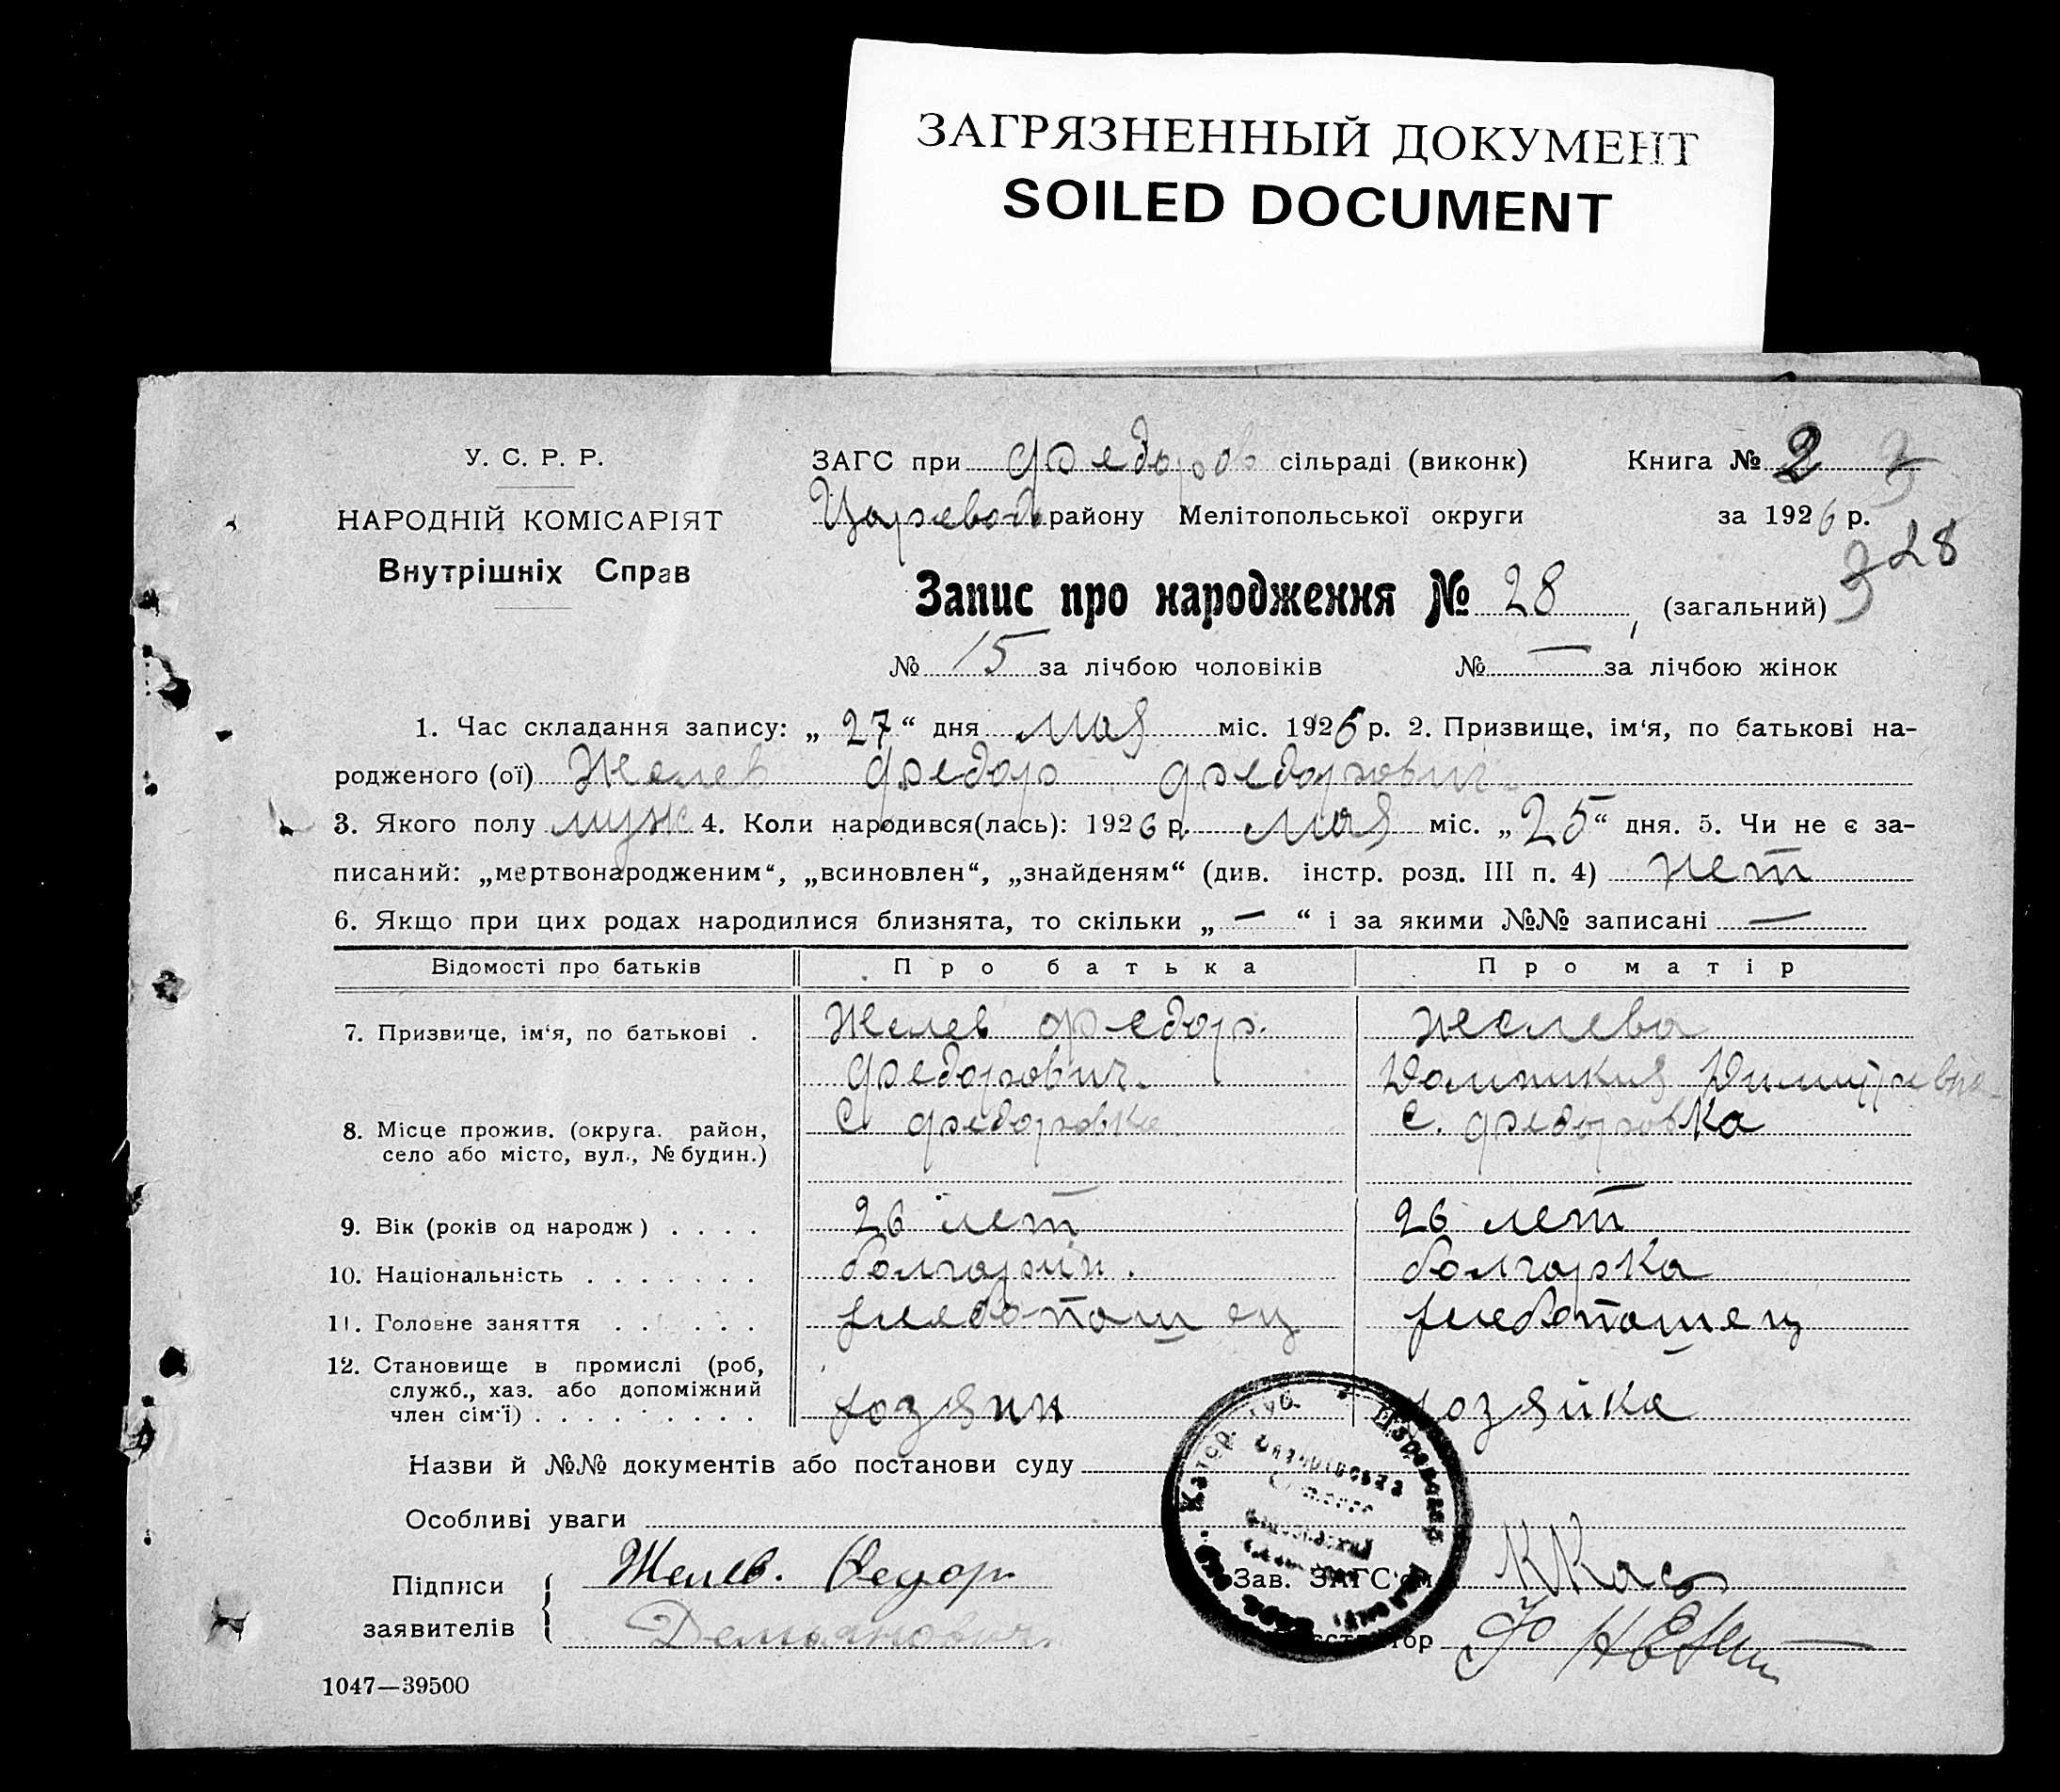 ЗАГРЯЗНЕННЫЙ ДОКУМЕНТ
SOILED DOCUMENT
У. С. Р. Р.
НАРОДНІЙ КОМІСАРІЯТ
Внутрішніх Справ
ЗАГС при Федоров сільраді (виконк) Книга № 2
Царевод району Мелітопольської округи за 1926 р.
328
Запис про народження № 28, (загальний)
№ 15 за лічбою чоловіків № — за лічбою жінок
1. Час складання запису: „ 27 “ дня мая міс. 1926 р. 2. Призвище, ім‘я, по батькові на-
родженого (ої) Желев Федор Федорович
3. Якого полу муж 4. Коли народився(лась): 1926 р. мая міс. „ 25 “ дня. 5. Чи не є за-
писаний: „мертвонародженим“, „всиновлен“, „знайденям“ (див. інстр. розд. III п. 4) нет
6. Якщо при цих родах народилися близнята, то скільки „ — “ і за якими №№ записані —
Відомості про батьків Про батька Про матір
7. Призвище, ім‘я, по батькові . Желев Федор. Желева
Федорович. Домникия
8. Місце прожив. (округа. район, С Федоровка С. Федоровка
село або місто, вул., № будин.)
9. Вік (років од народж) . . . . 26 лет 26 лет
10. Національність . . . . . . . болгарин. болгарка
11. Головне заняття . . . . . . хлебопашец хлебопашец
12. Становище в промислі (роб,
служб., хаз. або допоміжний
член сім‘ї) . . . . . . . . . хозяин хозяйка
Назви й №№ документів або постанови суду
Особливі уваги
Підписи Желев. Федор Зав. ЗАГС‘ом
заявителів Демьянович
1047—39500